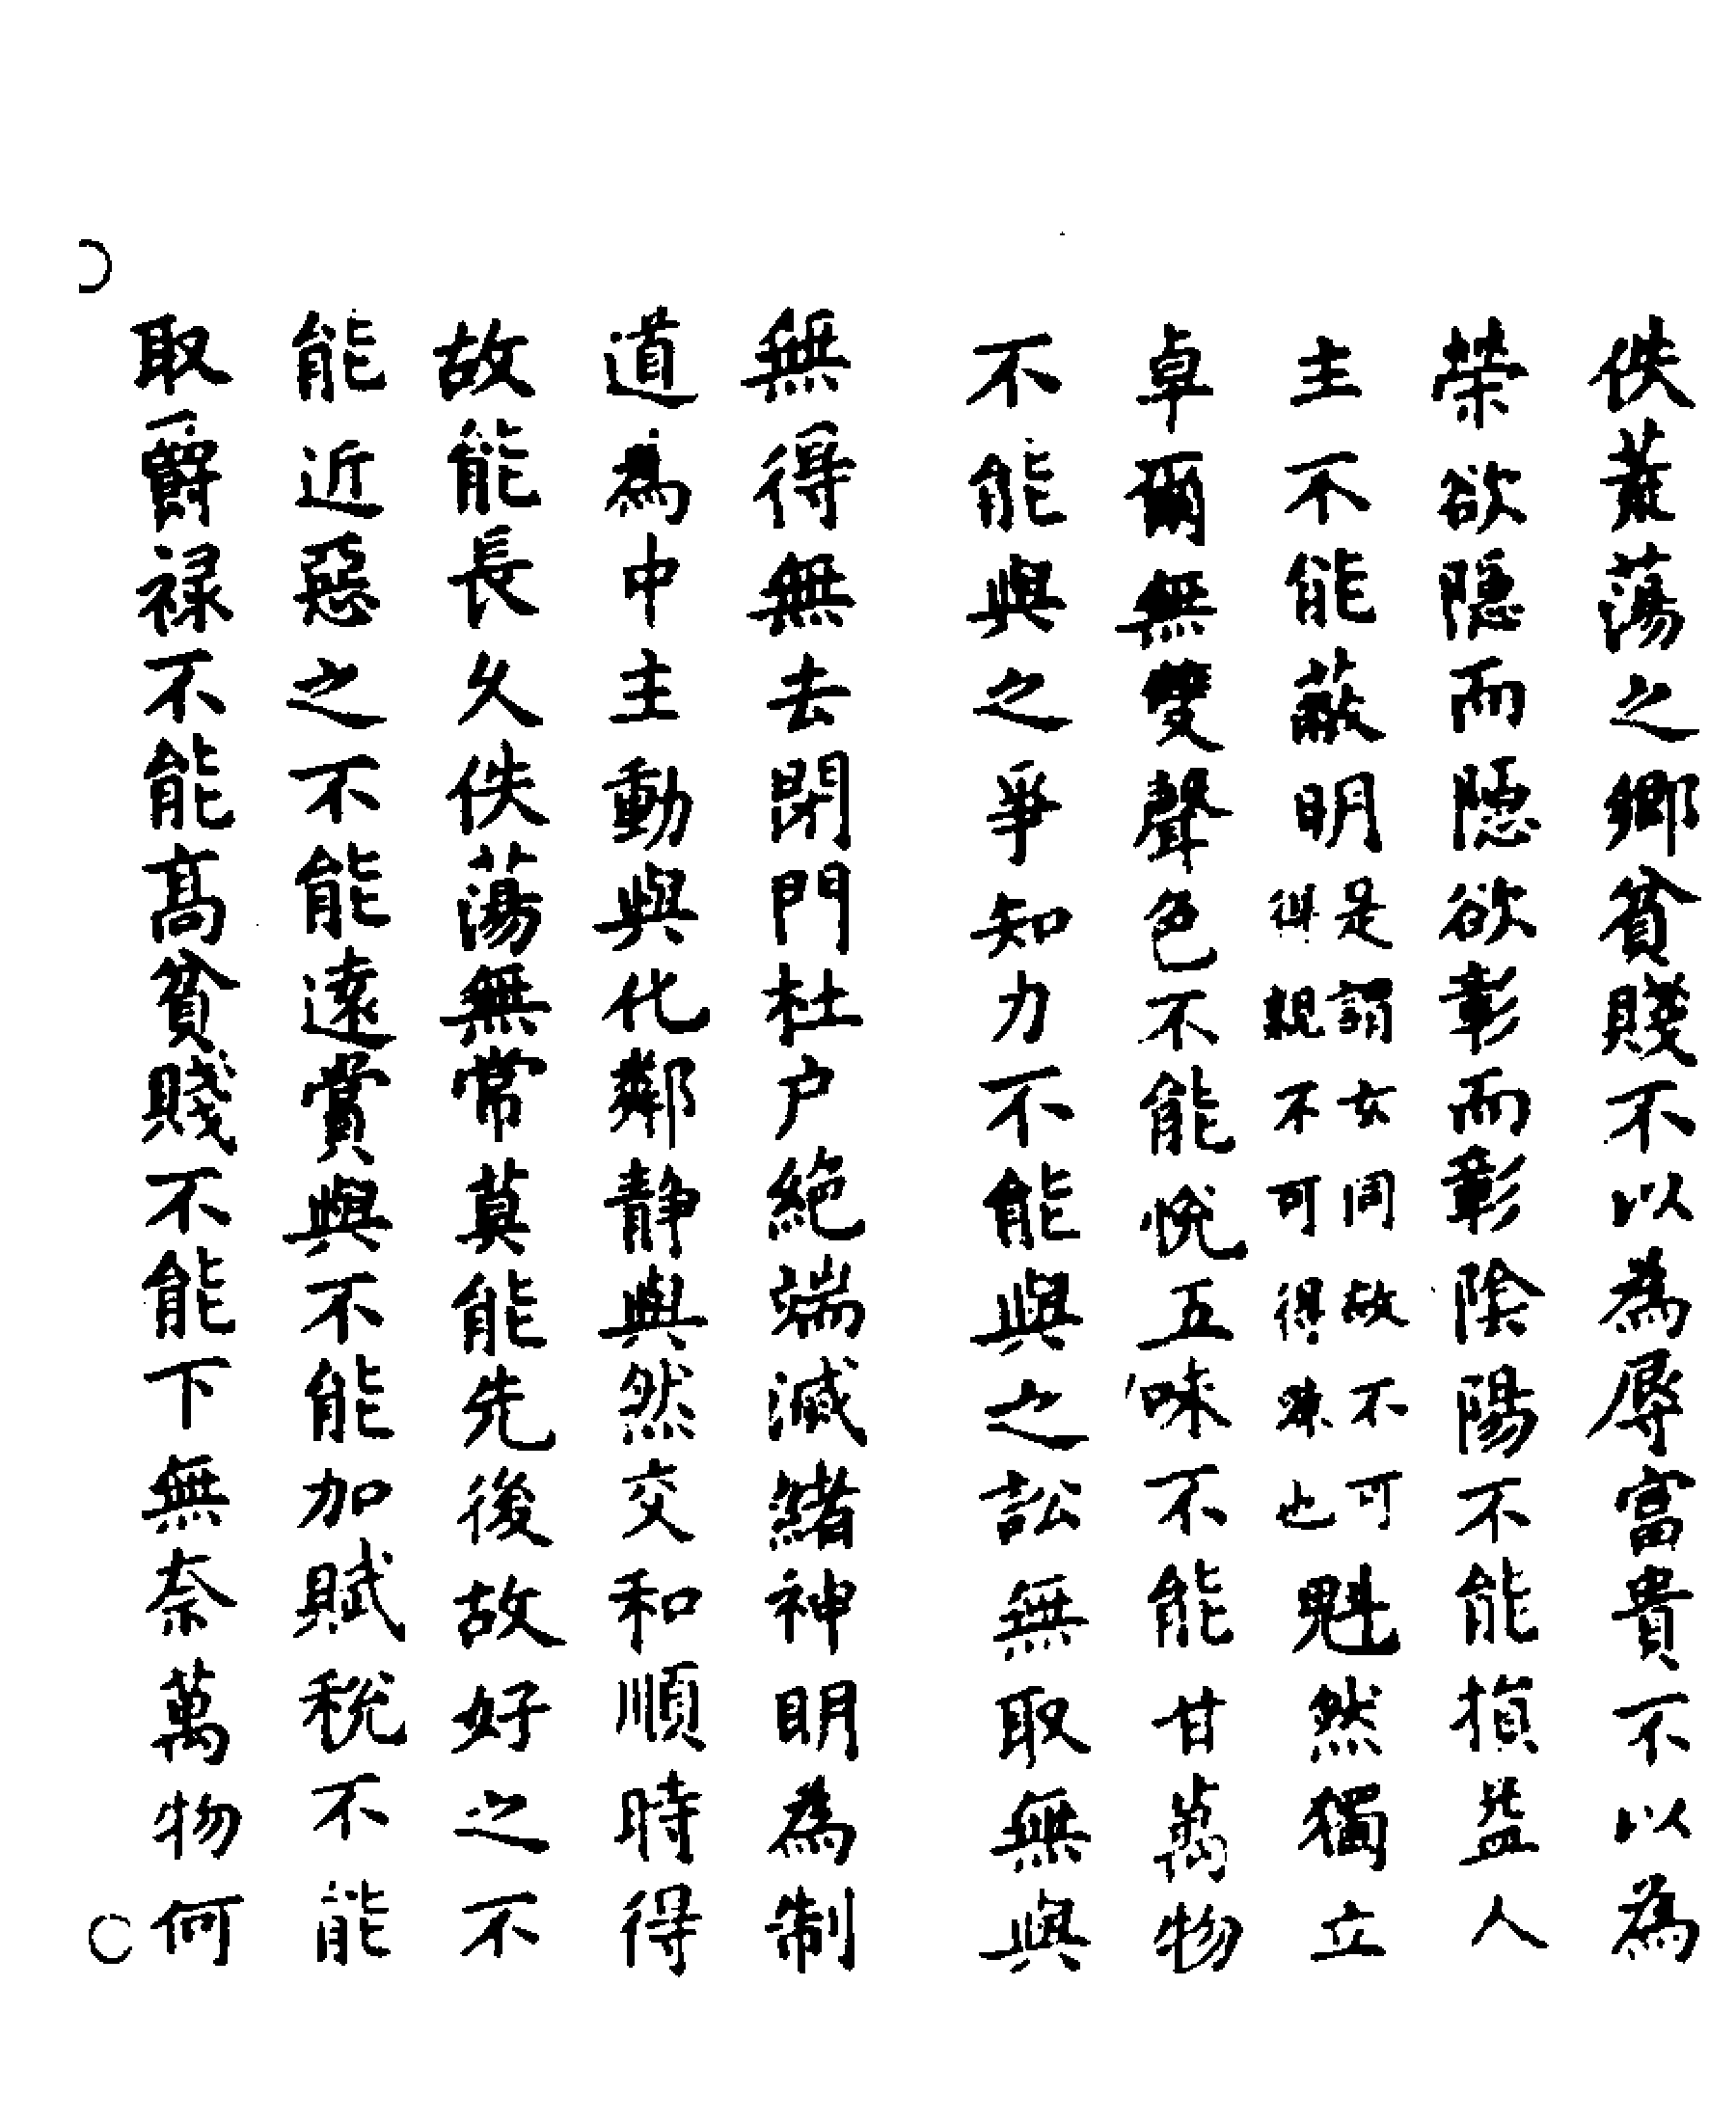 佚蕩蕩之鄉貧賤不以為辱富貴不以為
榮欲隱而隱欲彰而彰陰陽不能損益人
主不能蔽明是謂玄同故不可得親不可得踈也魁然獨立
卓爾無雙聲色不能悅五味不能甘萬物
不能與之爭知力不能與之訟無取無與
無得無去閉門杜户絕端滅緒神明為制
道為中主動與化鄰静與然交和順時得
故能長久佚蕩無常莫能先後故好之不
能近惡之不能遠賞與不能加賦税不能
取爵禄不能髙貧賤不能下無奈萬物何